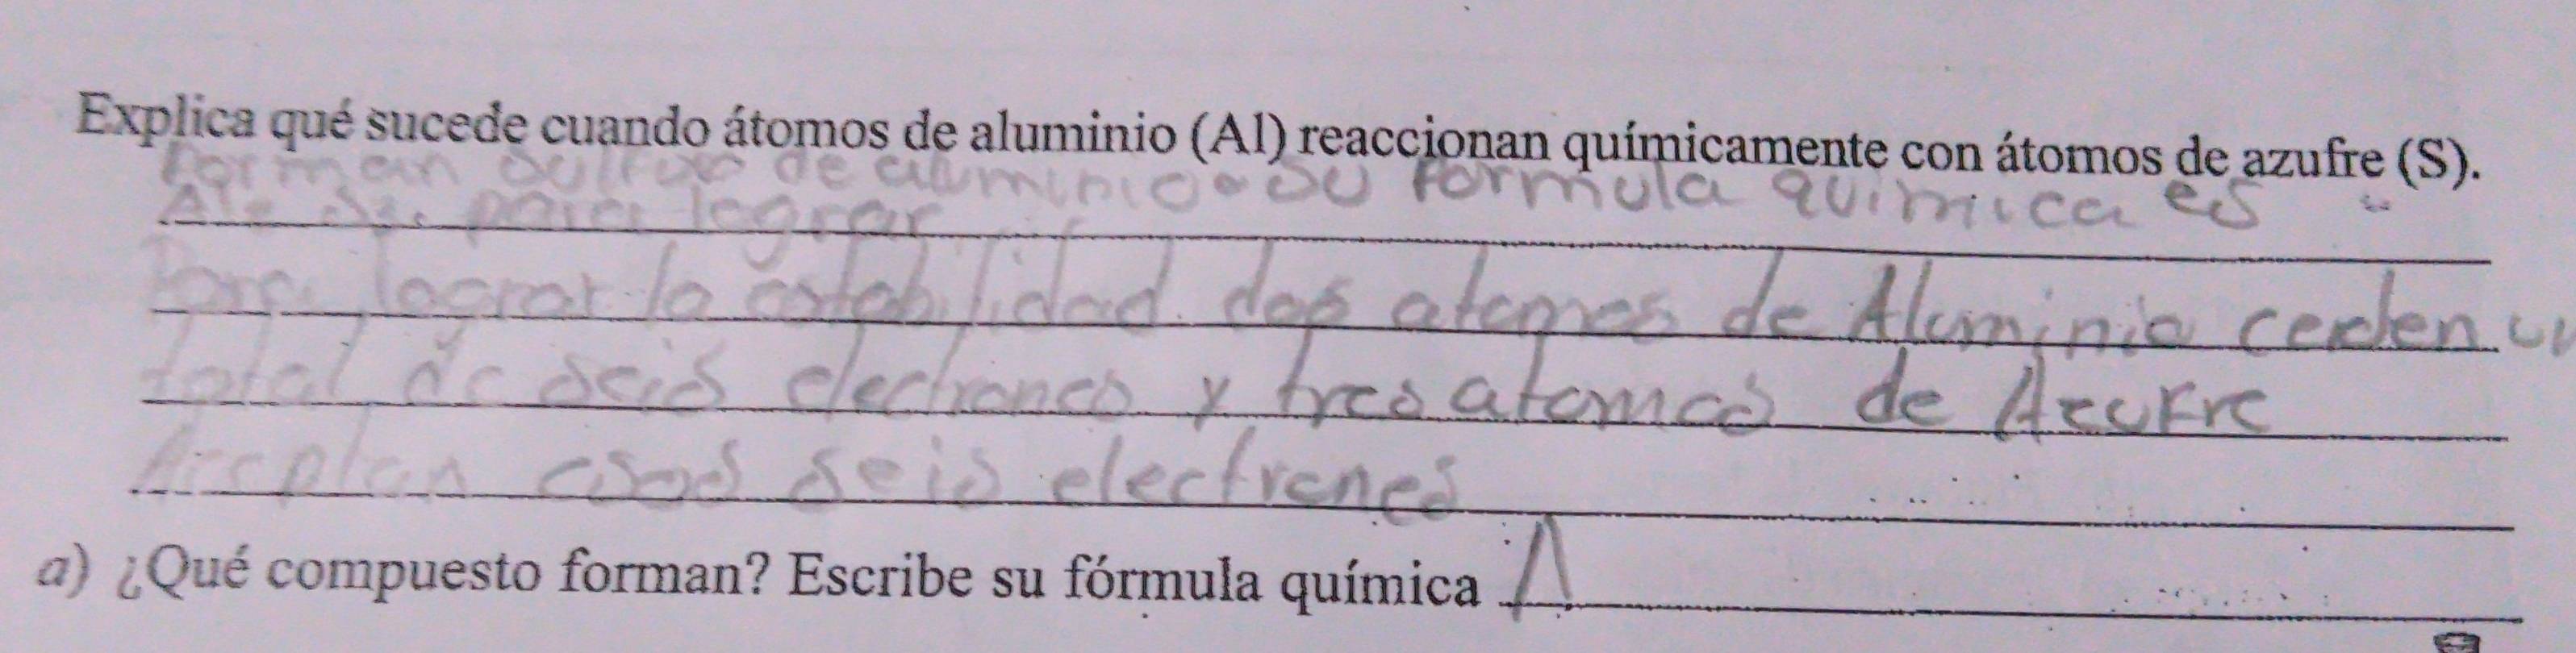 Explica qué sucede cuando átomos de aluminio (Al) reaccionan químicamente con átomos de azufre (S).
Forman sulfuro de aluminio. Su formula quimica es
Al₂ S₃. para lograr
Para lograr la estabilidad dos atomos de Aluminio ceden un
total de seis electrones y tres atomos de Azufre
Aceptan esos seis electrones
a) ¿Qué compuesto forman? Escribe su fórmula química A